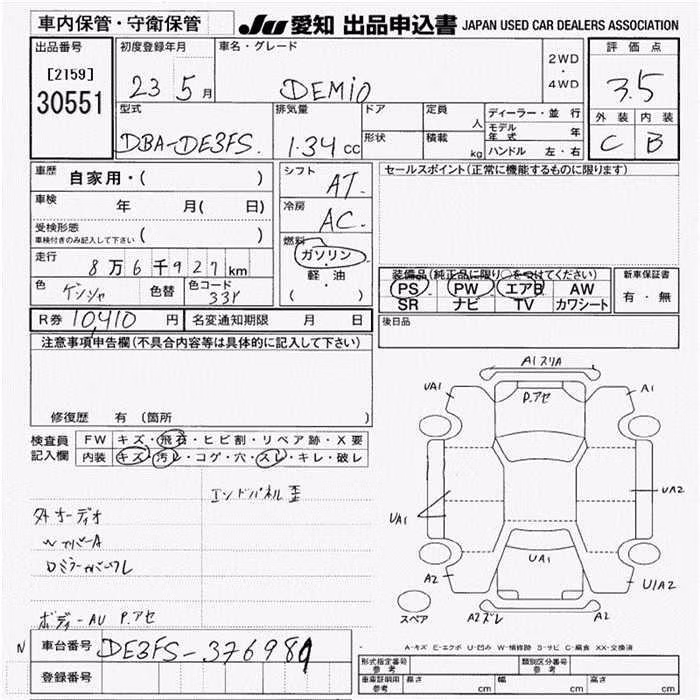 車内保管・守衛保管
JU 愛知 出品申込書 JAPAN USED CAR DEALERS ASSOCIATION
出品番号
[2159]
30551
初度登録年月
23 5 月
車名・グレード
DEMIO
2WD
・
4WD
評価点
3.5
外装 内装
C B
型式
DBA-DE3FS.
排気量
1.34 cc
ドア
形状
定員 人
積載 kg
ディーラー・並行
モデル年式 年
ハンドル 左・右
車歴 自家用・( )
車検 年 月( 日)
受検形態
車検付きのみ記入して下さい ( )
走行
8万6千927km
色 ゲンシャ 色替 色コード 33Y
シフト AT.
冷房 AC.
燃料
ガソリン
・
軽油
( )
セールスポイント(正常に機能するものに限ります)
装備品(純正品に限り○をつけてください)
PS PW エアB AW
SR ナビ TV カワシート
新車保証書
有・無
R券 10,410 円
名変通知期限 月 日
後日品
注意事項申告欄(不具合内容等は具体的に記入して下さい)
修復歴 有 (箇所 )
検査員
記入欄
FW キズ・飛石・ヒビ割・リペア跡・X要
内装 キズ・汚レ・コゲ・穴・スレ・キレ・破レ
エンドパネル歪
外オーディオ
WカバーA
Dミラーカバーワレ
ボディーAU P.アセ
A1スリA
UA1
P.アセ
A1
UA1
UA2
UA1
A2
U1A2
スペア
A2ズレ
A2
N
車台番号 DE3FS-376989
登録番号
A-キズ E-エクボ U-凹み W-補修跡 S-サビ C-腐食 XX-交換済
形式指定番号
参考
類別区分番号
参考
車庫証明用
参考
長さ cm 幅 cm 高さ cm